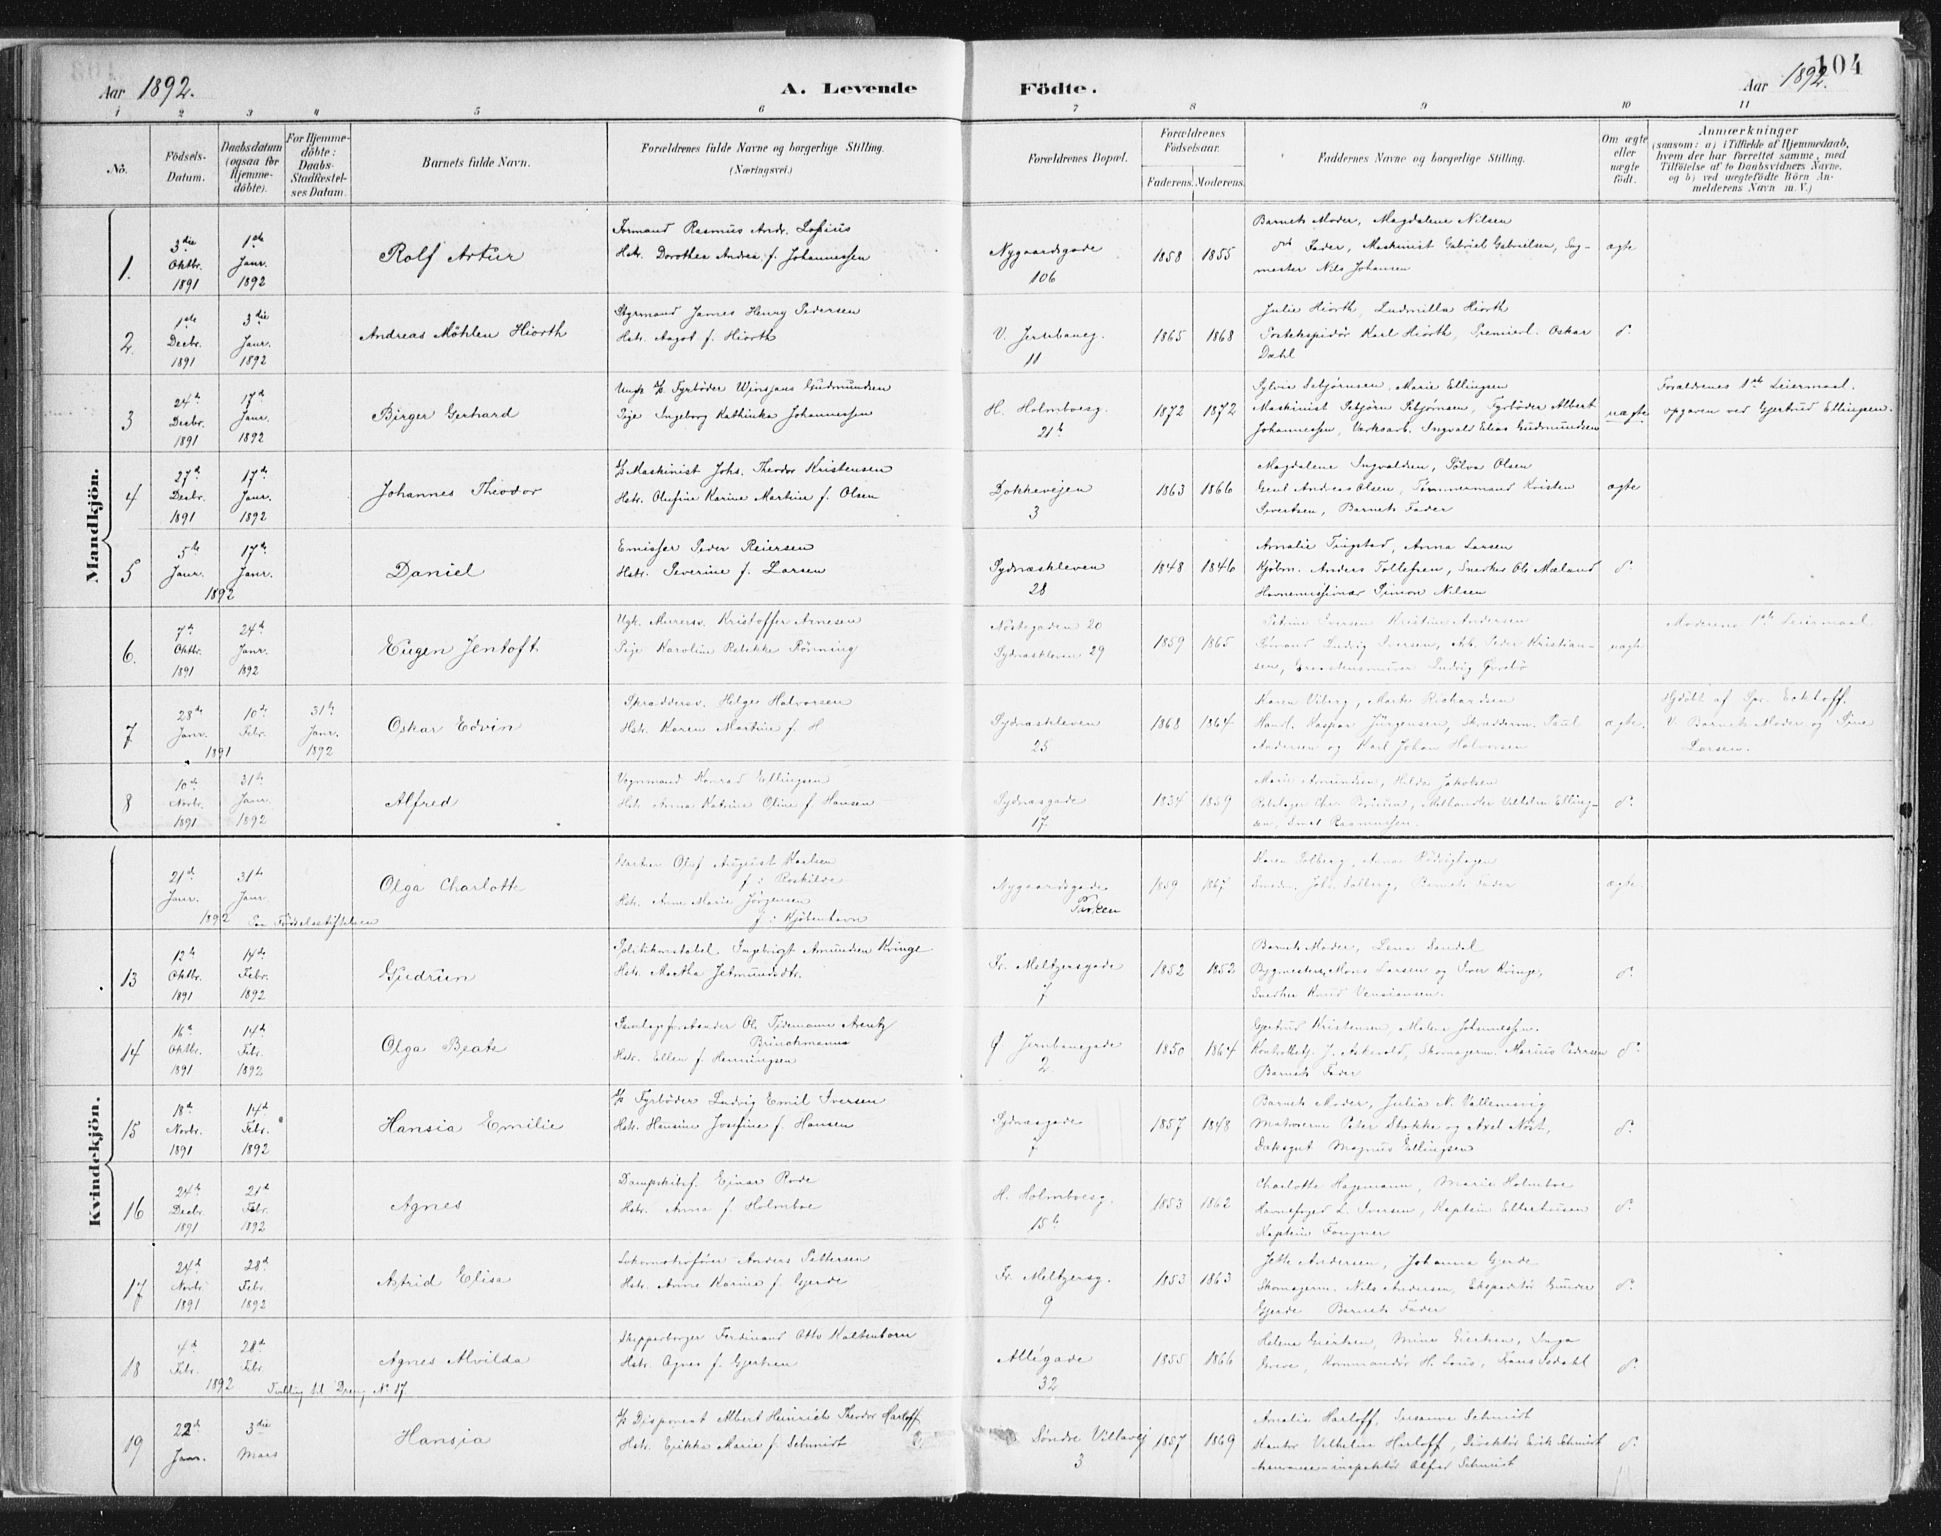 Aar 1892.
A. Levende
Födte.
Aar 1892.
104
1 2 3 4 5 6 7 8 9 10 11
No.
Födsels-Datum.
Daabsdatum (ogsaa for Hjemmedöbte).
For Hjemmedöbte: Daabs-Stadfestelses Datum.
Barnets fulde Navn.
Forældrenes fulde Navne og borgerlige Stilling.
(Næringsvei.)
Forældrenes Bopæl.
Forældrenes Födselsaar.
Faderens. Moderens.
Faddernes Navne og borgerlige Stilling.
Om ægte eller uægte födt.
Anmærkninger
(saasom: a) i Tilfælde af Hjemmedaab, hvem der har forrettet samme, med Tilföielse af to Daabsvidners Navne, og b) ved uægtefödte Börn Anmelderens Navn m. V.)
Mandkjön.
1. 3die Oktbr. 1891 1ste Janr. 1892 Rolf Artur
Formand Rasmus Andr.
Hstr. Dorothea Andrea f. Johannessen
Nygaardsgade 106
1858 1855
Barnets Moder, Magdalene Nilsen
Fader, Maskinist Gabriel Gabrielsen,
mester Nils Johansen
ægte
2. 1ste Decbr. 1891 3die Janr. 1892 Andreas Möhlen Hiorth
Styrmand James Henry Pedersen
Hstr. Aagot f. Hiorth
V. Jernbaneg. 11
1865 1868
Julie Hiorth, Ludmilla Hiorth
Postekspeditør Karl Hiorth, Premierl. Oskar
Dahl
do.
3 24de Decbr. 1891 17de Janr. 1892 Birger Gerhard
Fyrböder Gudmundsen
Pige Ingeborg Kathinka Johannessen
H. Holmboesg. 21b
1872 1872
Marie Ellingsen
Maskinist Fyrböder Albert
Johannessen, Verksarb. Ingvald Elias Gudmundsen
uægte
Forældrenes 1ste Leiermaal.
opgaven ved Gjertrud Ellingsen.
4 27de Decbr. 1891 17de Janr. 1892 Johannes Theodor
Maskinist Johs. Theodor Kristensen
Hstr. Olufine Karine Martine f. Olsen
Dokkeveien 3
1863 1866
Magdalene Ingvaldsen, Olsen
Andreas Olsen, Tømmermand Kristen
Sivertsen, Barnets Fader
ægte
5 5te Janr. 17de Janr. 1892 Daniel
Emissær Peder Reiersen
Hstr. Severine f. Larsen
Sydneskleven 28
1848 1846
Amalie Tingstad, Anna Larsen
Kjøbm. Anders Tollefsen, Snedker Ole Mæland
Havnemissionær Simon Nilsen
do.
6. 7de Oktbr. 1891 24de Janr. 1892 Eugen Jentoft
Ugk. Murersv. Kristoffer Arnesen
Pige Karoline Rebekka Rönning
Nöstegaden 20
Sydneskleven 29
1859 1865
Petrine Iversen Kristine Andersen
Sömand Ludvig Iversen, Arb. Peder Kristian-
sen,
uægte
Moderens 1ste Leiermaal
7 28de Janr. 10de Febr. 1891 31te Janr. 1892 Oskar Edvin
Skræddersv. Helge Halvorsen
Hstr. Karen Martine f. H
Sydneskleven 25
1868 1864
Karen Viberg, Marta Richardsen
Handl. Kaspar Jürgensen, Skrædderm. Paul
Andersen og Karl Johan Halvorsen
ægte.
Hjdöbt af Spr. Eckhoff.
V. Barnets Moder og Sine
Larsen.
8 10de Novbr. 1891 31te Janr. 1892 Alfred
Vognmand Konrad Ellingsen
Hstr. Anna Katrine Oline f. Hansen
Sydnesgade 17
1834 1859
Marie Amundsen, Hilda Jakobsen
Vilhelm Elling-
sen, Rasmussen.
do.
Kvindekjön.
21de Janr. 31te Janr. 1892 Paa Födselsstiftelsen
Olga Charlotte
Olof August Karlsen
f. i Roskilde
Hstr. Anne Marie Jörgensen
f. i Kjöbenhavn
Nygaardsgade Parken
1859 1867
Karen Solberg, Anna
Smedm. Johs. Solberg, Barnets Fader
ægte
13 12te Oktbr. 1891 14de Febr. 1892 Gudrun
Politikonstabel Ingebrigt Amundsen Kvinge
Hstr. Martha Jetmundsdt.
Fr. Meltzersgade 7
1852 1852
Barnets Moder, Lena Sandal
Bygmester Mons Larsen og Iver Kvinge,
Snedker Knud
do.
14 16de Oktbr. 1891 14de Febr. 1892 Olga Beate
Ol. Tidemann Arentz
Brinchmann
Hstr. Ellen f. Henningsen
Ø Jernbanegade 2
1850 1864
Gjertrud Kristensen, Malene Johannessen.
J. Askevold, Skomagerm. Marius Pedersen
Barnets Fader
do.
15 18de Novbr. 1891 14de Febr. 1892 Hansia Emilie
Fyrböder Ludvig Emil Iversen
Hstr. Hansine Josefine f. Hansen
Sydnesgade 7
1857 1848
Barnets Moder, Julia N.
Matroserne Peter Stokke og Axel Nøst,
Dæksgut Magnus Ellingsen
do.
16 24de Decbr. 1891 21de Febr. 1892 Agnes
Dampskibsf. Ejnar Rode
Hstr. Anna f. Holmboe
H. Holmboesg. 15b
1853 1862
Charlotte Hagemann, Marie Holmboe
Havnefoged L. Iversen, Kaptein Ellerhusen
Kaptein Fougner
do.
17 24de Novbr. 1891 28de Febr. 1892 Astrid Elisa
Lokomotivfører Anders Pettersen
Hstr. Anne Karina f. Gjerde
Fr. Meltzersg. 9
1853 1863
Jette Andersen, Johanna Gjerde
Skomagerm. Nils Andersen, Ekspeditør Gunder
Gjerde Barnets Fader
do.
18 4de Febr. 28de Febr. 1892 Tvilling til Dreng No 17
Agnes Alvilda
Skipperborger Ferdinand Otto Kaltenborn
Hstr. Agnes f. Gjertsen
Allégade 32
1855 1866
Helene Giertsen, Mina Giertsen, Inga
Greve, Kommandør H. Lous,
do.
19 22de Janr. 3die Mars Hansia
Disponent Albert Heinrich Theodor Harloff
Hstr. Erikka Marie f. Schmidt
Søndre Villavej 3
1857 1869
Amalie Harloff, Susanne Schmidt
Kantor Vilhelm Harloff, Direktør Erik Schmidt
Assuranceinspektör Alfred Schmidt
do.